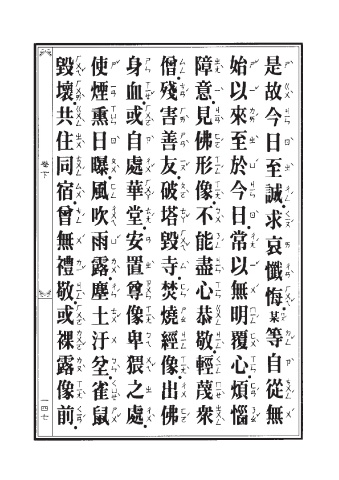 是故今日至誠求哀懺悔某等自從無
始以來至於今日常以無明覆心煩惱
障意見佛形像不能盡心恭敬輕蔑衆
僧殘害善友破塔毀寺焚燒經像出佛
身血或自處華堂安置尊像卑猥之處
使煙熏日曝風吹雨露塵土汙坌雀鼠
毀壞共住同宿曾無禮敬或裸露像前
卷下
一四七